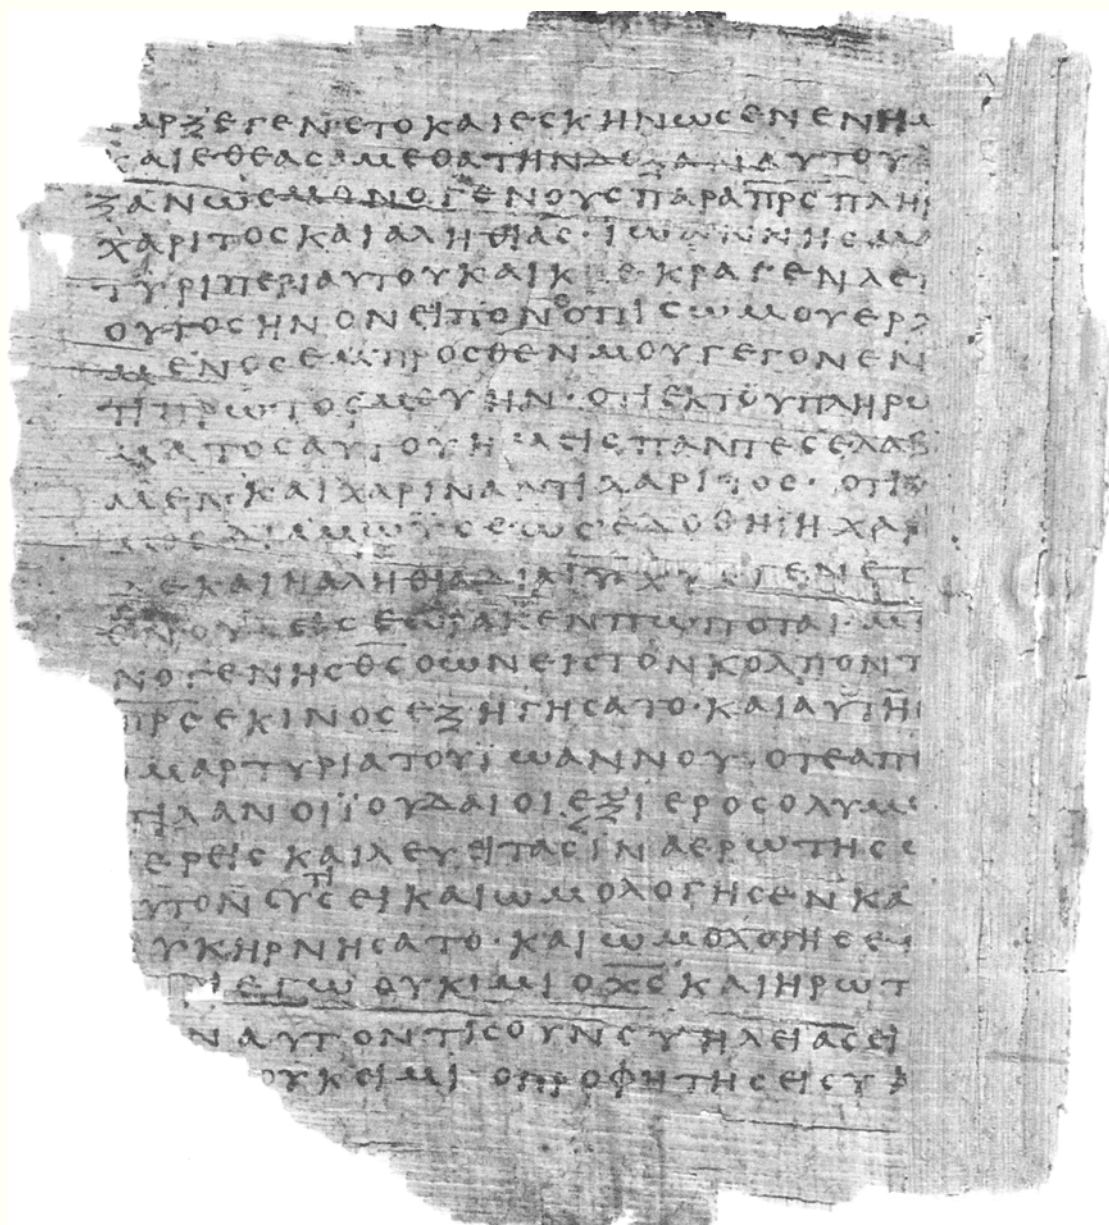 ϹΑΡΞ ΕΓΕΝΕΤΟ ΚΑΙ ΕϹΚΗΝΩϹΕΝ ΕΝ ΗΜ
ΚΑΙ ΕΘΕΑϹΑΜΕΘΑ ΤΗΝ ΑΥΤΟΥ
ΞΑΝ ΩϹ ΜΟΝΟΓΕΝΟΥϹ ΠΑΡΑ Π̅Ρ̅Ϲ̅ ΠΛΗΡ
ΧΑΡΙΤΟϹ ΚΑΙ ΑΛΗΘΙΑϹ· ΪΩΑΝΝΗϹ ΜΑΡ
ΤΥΡΙ ΠΕΡΙ ΑΥΤΟΥ ΚΑΙ ΚΕΚΡΑΓΕΝ ΛΕΓ
ΟΥΤΟϹ ΗΝ ΟΝ ΕΙΠΟΝ Ο ΟΠΙϹΩ ΜΟΥ ΕΡΧ
ΜΕΝΟϹ ΕΜΠΡΟϹΘΕΝ ΜΟΥ ΓΕΓΟΝΕΝ
ΤΙ ΠΡΩΤΟϹ ΜΟΥ ΗΝ· ΟΤΙ ΕΚ ΤΟΥ ΠΛΗΡΩ
ΜΑΤΟϹ ΑΥΤΟΥ ΗΜΕΙϹ ΠΑΝΤΕϹ ΕΛΑΒ
ΜΕΝ· ΚΑΙ ΧΑΡΙΝ ΑΝΤΙ ΧΑΡΙΤΟϹ· ΟΤΙ
ΜΟϹ ΔΙΑ ΜΩΫϹΕΩϹ ΕΔΟΘΗ Η ΧΑΡ
ΔΕ ΚΑΙ Η ΑΛΗΘΙΑ ΔΙΑ Ι̅Υ̅ Χ̅Υ̅ ΕΓΕΝΕΤ
ΕΩΡΑΚΕΝ ΠΩΠΟΤΑΙ· Μ
ΝΟΓΕΝΗϹ Θ̅Ϲ̅ Ο ΩΝ ΕΙϹ ΤΟΝ ΚΟΛΠΟΝ Τ
Π̅Ρ̅Ϲ̅ ΕΚΙΝΟϹ ΕΞΗΓΗϹΑΤΟ· ΚΑΙ ΑΥΤΗ
ΜΑΡΤΥΡΙΑ ΤΟΥ ΪΩΑΝΝΟΥ· ΟΤΕ ΑΠ
ΤΙΛΑΝ ΟΙ ΪΟΥΔΑΙΟΙ ΕΞ ΙΕΡΟϹΟΛΥΜ
ΕΡΕΙϹ ΚΑΙ ΛΕΥΕΙΤΑϹ ΙΝΑ ΕΡΩΤΗϹ
ΥΤΟΝ ϹΥ ΤΙϹ ΕΙ ΚΑΙ ΩΜΟΛΟΓΗϹΕΝ ΚΑ
ΥΚ ΗΡΝΗϹΑΤΟ· ΚΑΙ ΩΜΟΛΟΓΗϹΕΝ
ΕΓΩ ΟΥΚ ΙΜΙ Ο Χ̅Ϲ̅ ΚΑΙ ΗΡΩΤ
Ν ΑΥΤΟΝ ΤΙϹ ΟΥΝ ϹΥ ΗΛΕΙΑϹ ΕΙ
ΟΥΚ ΕΙΜΙ· Ο ΠΡΟΦΗΤΗϹ ΕΙ ϹΥ